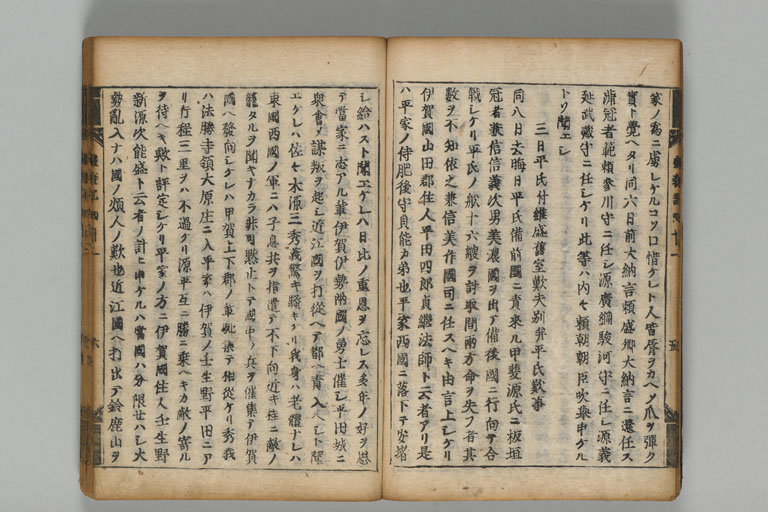 家ノ爲ニ虜レケルコソ口惜ケレト人皆脣ヲカヘシ爪ヲ彈ク
實ト覺ヘタリ同六日前大納言頼盛卿大納言ニ還任ス
蒲冠者範頼參川守ニ任シ源廣綱駿河守ニ任シ源義
延武藏守ニ任シケリ此等ハ内々頼朝朝臣吹擧申ケル
トソ聞エシ
三日平氏付維盛舊室歎夫別并平氏歎事
同八日文晦日平氏備前國ニ責來ル甲斐源氏ニ板垣
冠者兼信信義次男美濃國ヲ出テ備後國ニ行向テ合
戰シケリ平氏ノ舩十六艘ヲ討取間兩方命ヲ失フ者其
數ヲ不知依之兼信美作國司ニ任スヘキ由言上シケリ
伊賀國山田郡住人平田四郎貞繼法師ト云者アリ是
ハ平家ノ侍肥後守貞能カ弟也平家西國ニ落下テ安堵
シ給ハスト聞エケレハ日比ノ重恩ヲ忘レス多年ノ好ヲ思
テ當家ニ志アル輩伊賀伊勢兩國ノ勇士催シ平田城ニ
衆會ヲ謀叛ヲ起シ近江國ヲ打從ヘテ都ヘ責入ヘシト聞
エケレハ佐々木源三秀義驚キ騷キケリ我身ハ老體ナレハ
東國西國ノ軍ニハ子息共ヲ指遣テ不下向近キ程ニ敵ノ
籠タルヲ聞ナカラ非可默止トテ國中ノ兵ヲ催集テ伊賀
國ヘ發向シケレハ甲賀上下郡ノ輩馳集テ相從ケリ秀義
ハ法勝寺領大原庄ニ入平家ハ伊賀ノ壬生野平田ニア
リ行程三里ヲハ不過ケリ源平互ニ勝ニ乘ヘキカ敵ノ寄ル
ヲ待ヘキ歟ト評定シケリ平家ノ方ニ伊賀國住人壬生野
新源次能盛ト云者ノ計ヒ申ケルハ當國ハ分限セハシ大
勢亂入ナハ國ノ煩人ノ歎也近江國ヘ打出テ鈴鹿山ヲ